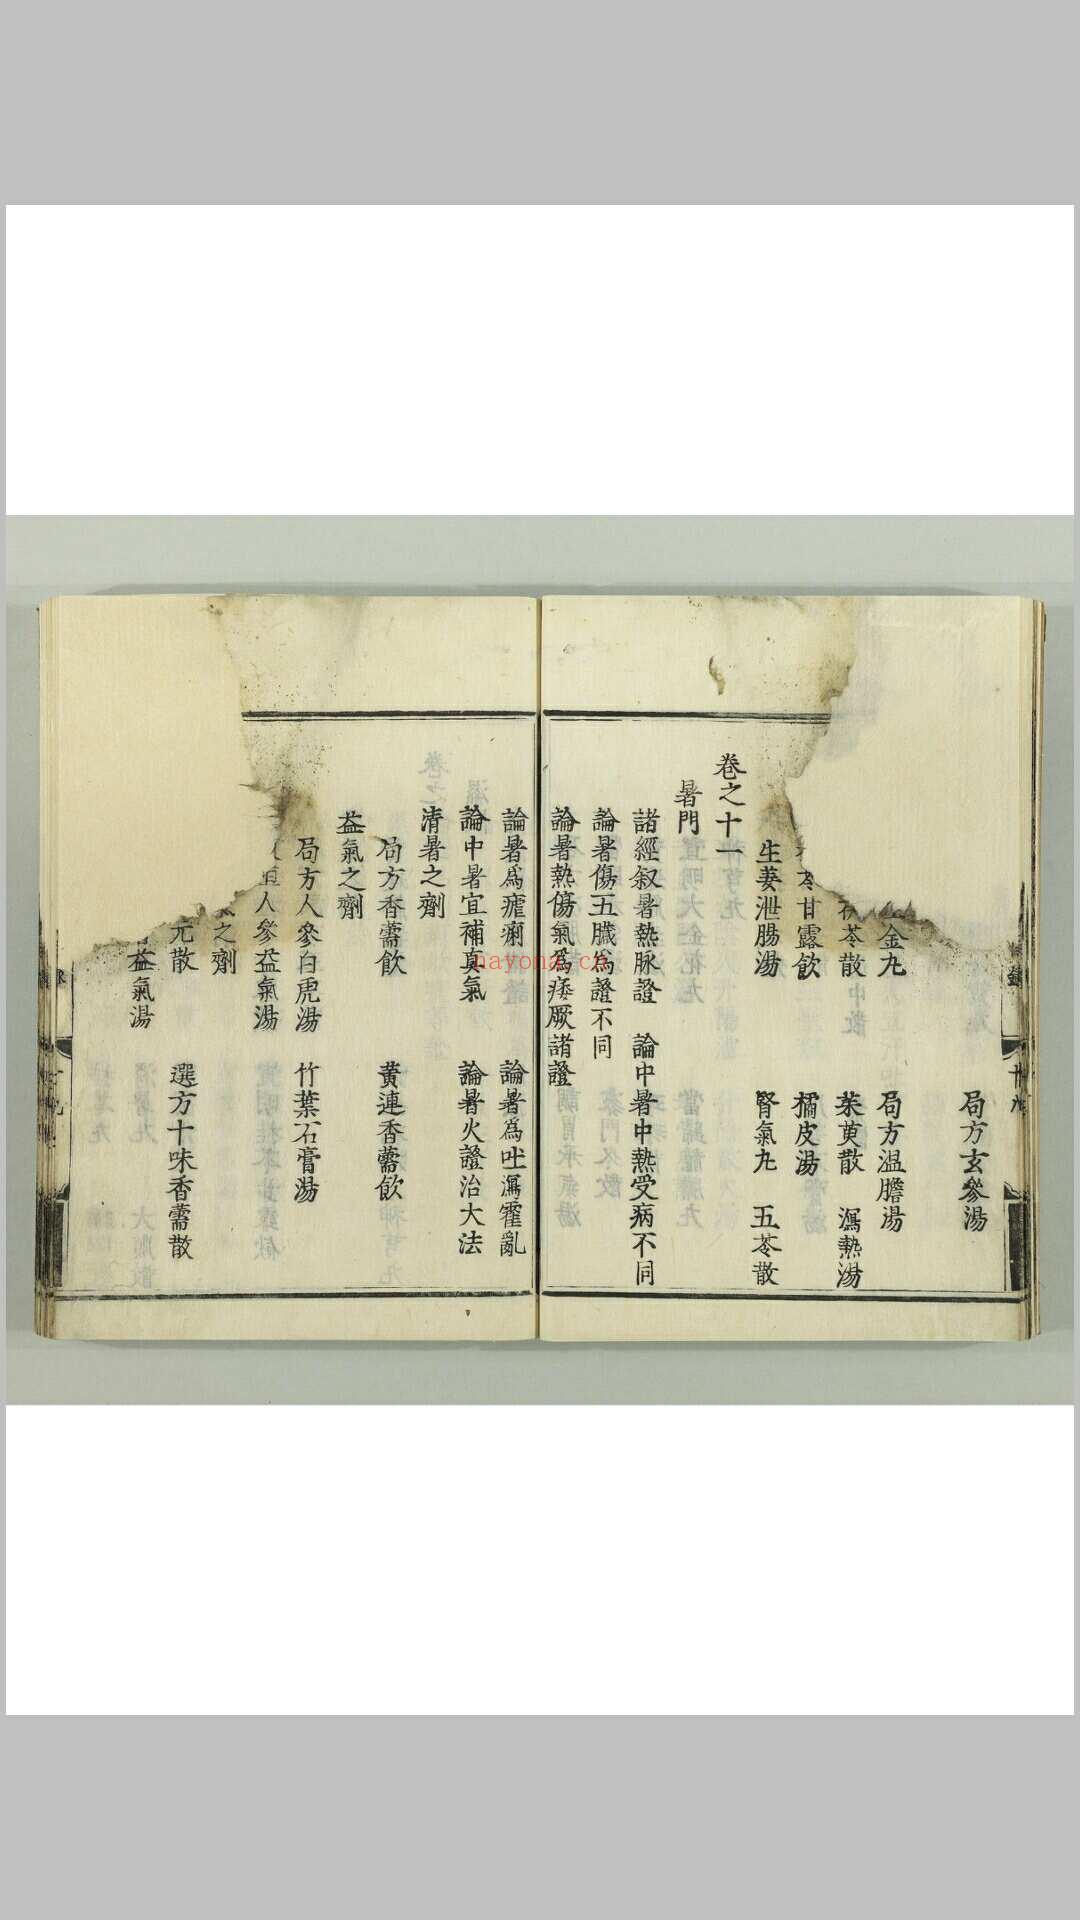 局方玄參湯
金九　局方温膽湯
苓散　茱萸散　瀉熱湯
苓甘露飲　橘皮湯
生姜泄腸湯　腎氣九　五苓散
卷之十一
暑門
諸經叙暑熱脉證　論中暑中熱受病不同
論暑傷五臟爲證不同
論暑熱傷氣爲痿厥諸證
論暑爲瘧痢　論暑爲吐瀉霍亂
論中暑宜補真氣　論暑火證治大法
清暑之劑
局方香薷飲　黄連香薷飲
益氣之劑
局方人參白虎湯　竹葉石膏湯
人參益氣湯
之劑
元散　選方十味香薷散
益氣湯
nayona.cn